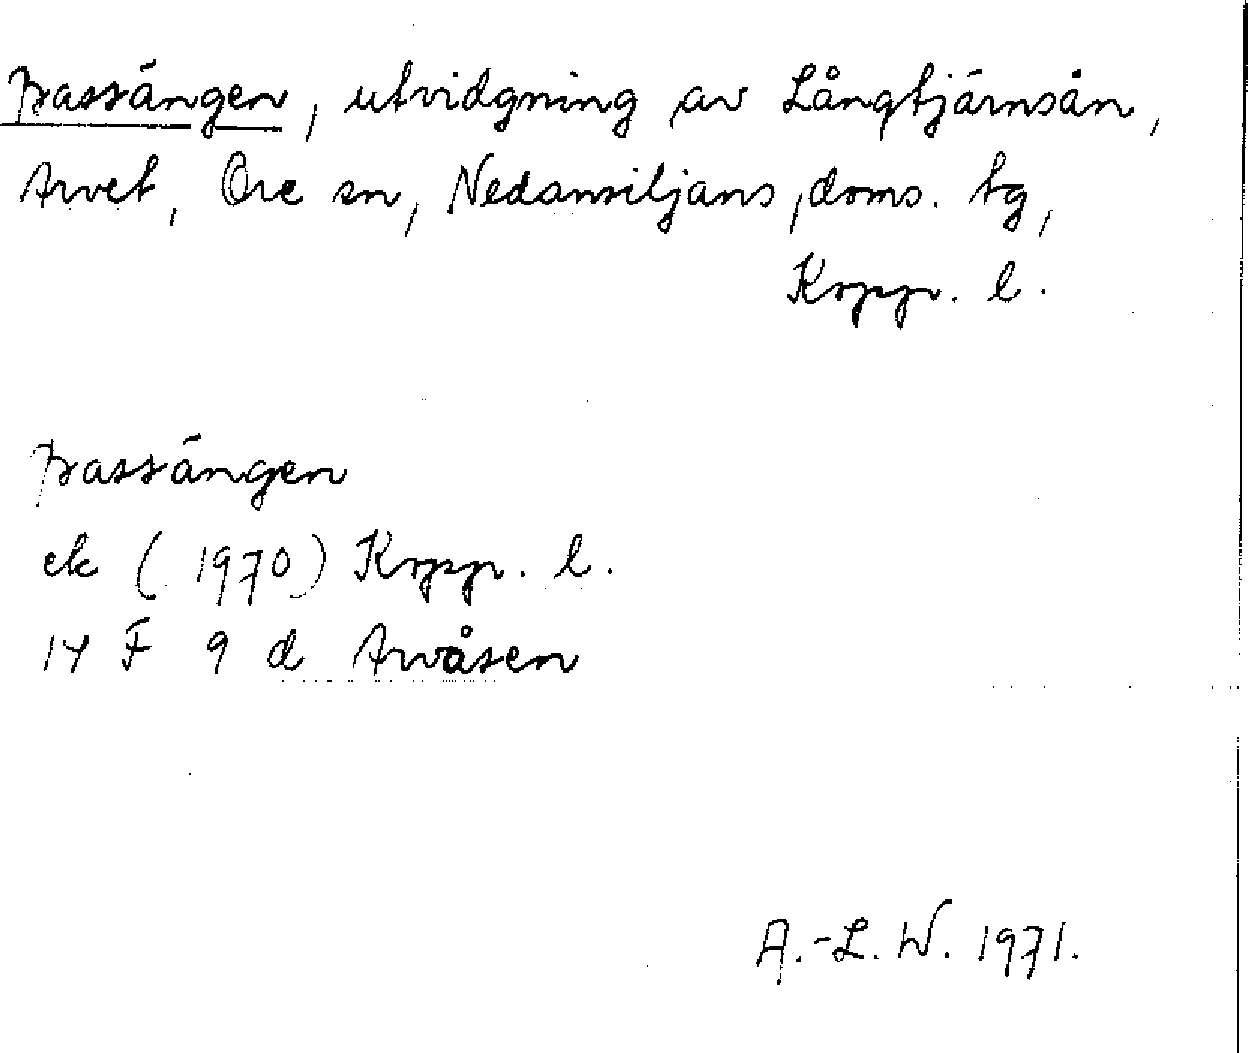 Bassängen, utvidgning av Långtjärnsån,
Arvet, Ore sn, Nedansiljans doms. tg,
Kopp. l.
Bassängen
ek (1970) Kopp. l.
14 F 9 d Arvåsen
A.-L. W. 1971.